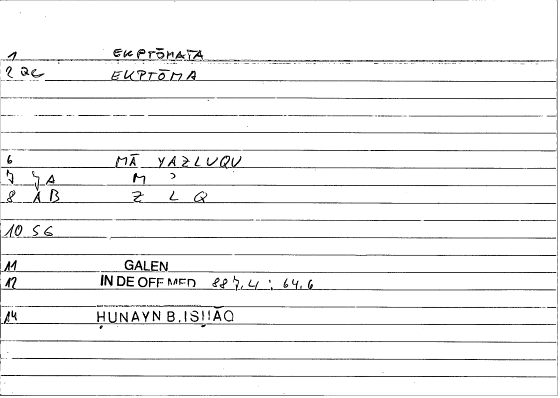 1 EKPTŌMATA
2 QC EKPTŌMA
6 MĀ YAZLUQU
7 JA M ʾ
8 AB Z L Q
10 SG
11 GALEN
12 IN DE OFF MED 887,4 : 64,6
14 ḤUNAYN B. ISḤĀQ